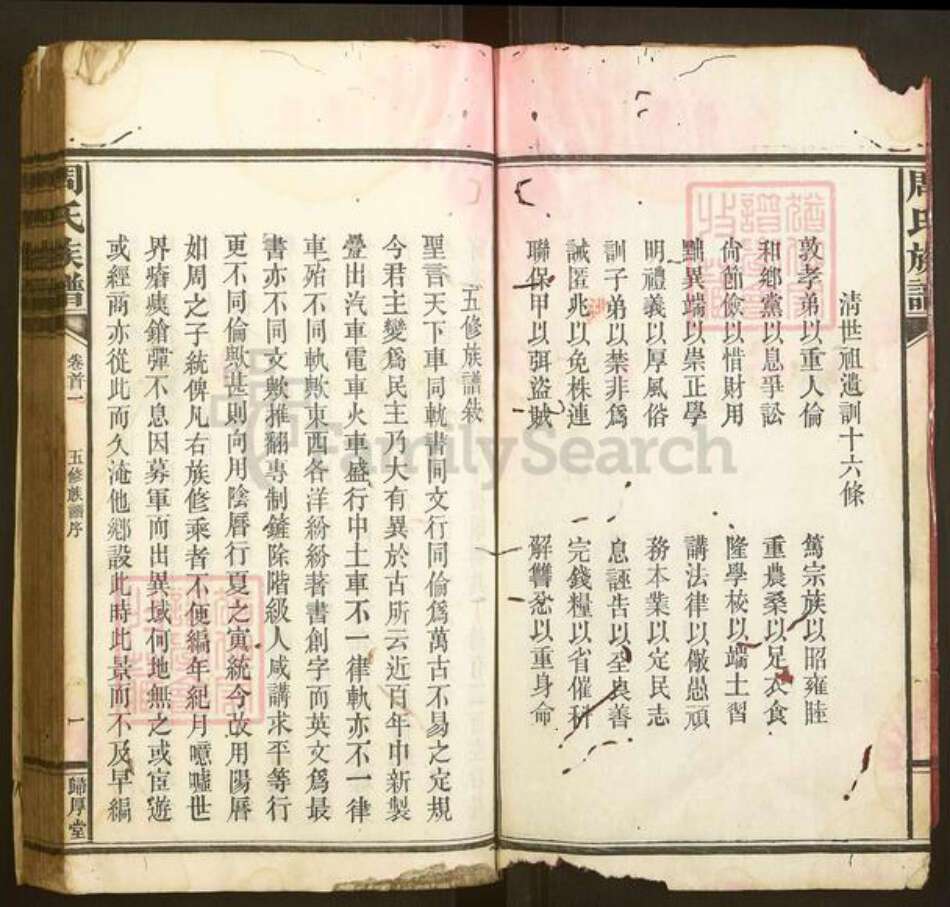 周氏族譜
清世祖遺訓十六條
敦孝弟以重人倫　篤宗族以昭雍睦
和鄉黨以息爭訟　重農桑以足衣食
尙節儉以惜財用　隆學校以端士習
黜異端以崇正學　講法律以儆愚頑
明禮義以厚風俗　務本業以定民志
訓子弟以禁非爲　息誣吿以全良善
誡匿兆以免株連　完錢糧以省催科
聯保甲以弭盜賊　解讐忿以重身命
五修族譜敘
聖言天下車同軌書同文行同倫爲萬古不易之定規
今君主變爲民主乃大有異於古所云近百年中新製
疊出汽車電車火車盛行中土車不一律軌亦不一律
車殆不同軌歟東西各洋紛紛著書創字而英文爲最
書亦不同文歟推翻專制鏟除階級人咸講求平等行
更不同倫歟甚則向用陰曆行夏之寅統今改用陽曆
如周之子統俾凡右族修乘者不便編年紀月噫嘘世
界瘡痍鎗彈不息因募軍而出異域何地無之或宦遊
或經商亦從此而久淹他鄉設此時此景而不及早編
周氏族譜
卷首一
五修族譜序
一
歸厚堂
FamilySearch